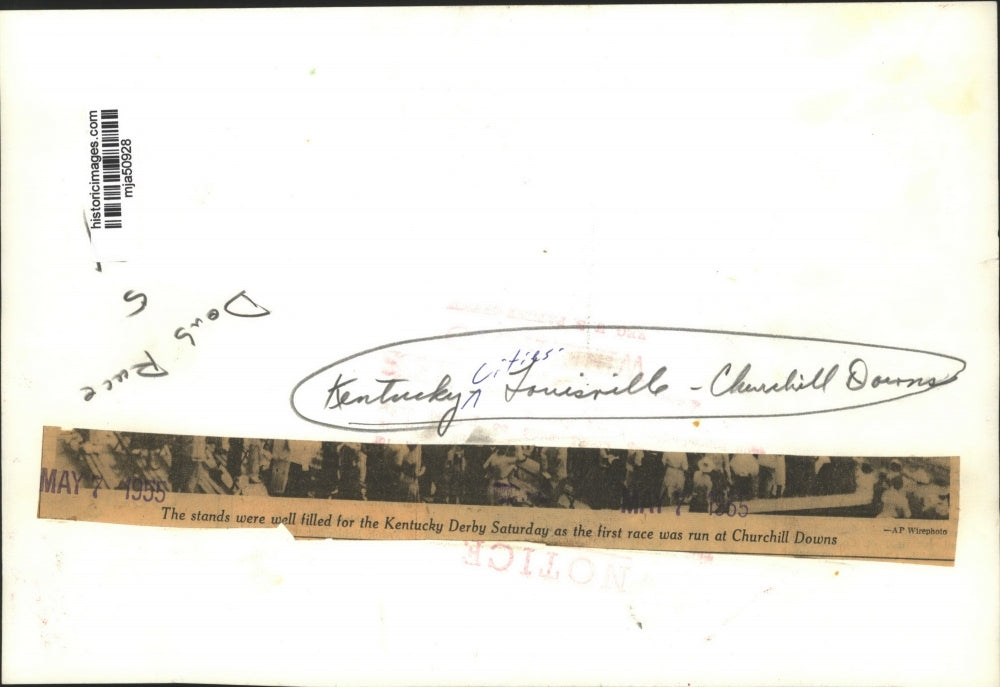 historicimages.com
mja50928
Kentucky Cities. Louisville - Churchill Downs
MAY 7 1955
MAY 7 - 1955
The stands were well filled for the Kentucky Derby Saturday as the first race was run at Churchill Downs
—AP Wirephoto
NOTICE